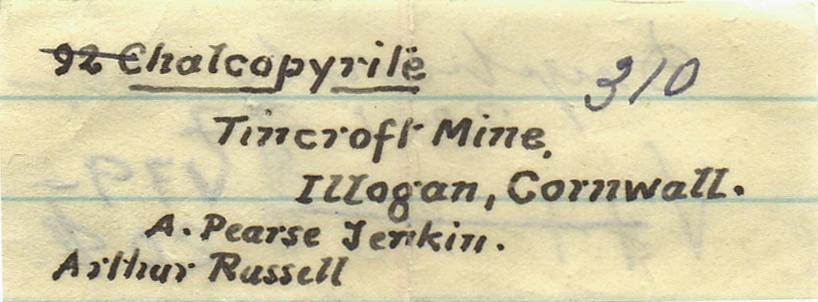 92 Chalcopyrite 310
Tincroft Mine,
Illogan, Cornwall.
A. Pearse Jenkin.
Arthur Russell